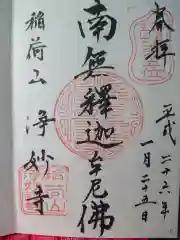 奉拝
平成二十六年
一月二十五日
南無釋迦牟尼佛
稲荷山 浄妙寺